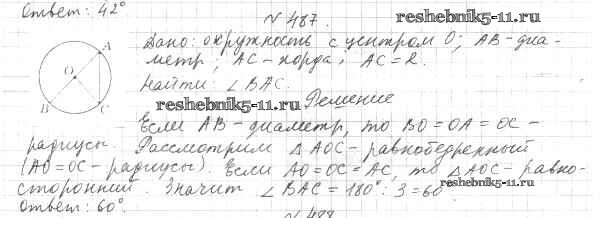 Ответ: 42°
N 487.
reshebnik5-11.ru
Дано: окружность с центром О; АВ-диа-
метр; АС-хорда; АС=R.
Найти: ∠ВАС.
A
O
B
C
reshebnik5-11.ru
Решение
Если АВ-диаметр, то ВО=ОА=ОС-
радиусы. Рассмотрим △АОС-равнобедренный
(АО=ОС-радиусы). Если АО=ОС=АС, то △АОС-равно-
сторонний. Значит ∠ВАС=180°:3=60°
reshebnik5-11.ru
Ответ: 60°.
N 488